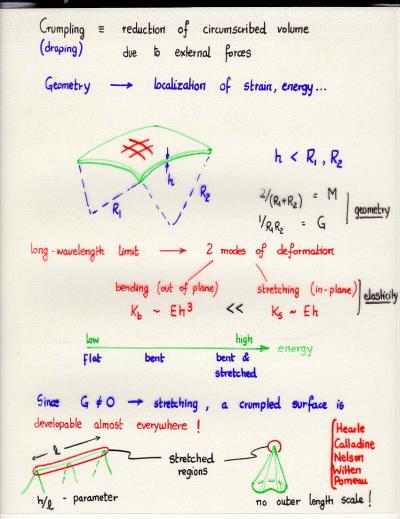 Crumpling ≡ reduction of circumscribed volume
(draping) due to external forces
Geometry → localization of strain, energy...
h
R₁
R₂
h < R₁, R₂
2/(R₁+R₂) = M
1/R₁R₂ = G
geometry
long-wavelength limit → 2 modes of deformation
bending (out of plane) stretching (in-plane)
K_b ~ Eh³ << K_s ~ Eh
elasticity
low high
energy
flat bent bent &
stretched
Since G ≠ 0 → stretching, a crumpled surface is
developable almost everywhere!
Hearle
Calladine
Nelson
Witten
Pomeau
l
stretched
regions
h/l - parameter
no outer length scale!